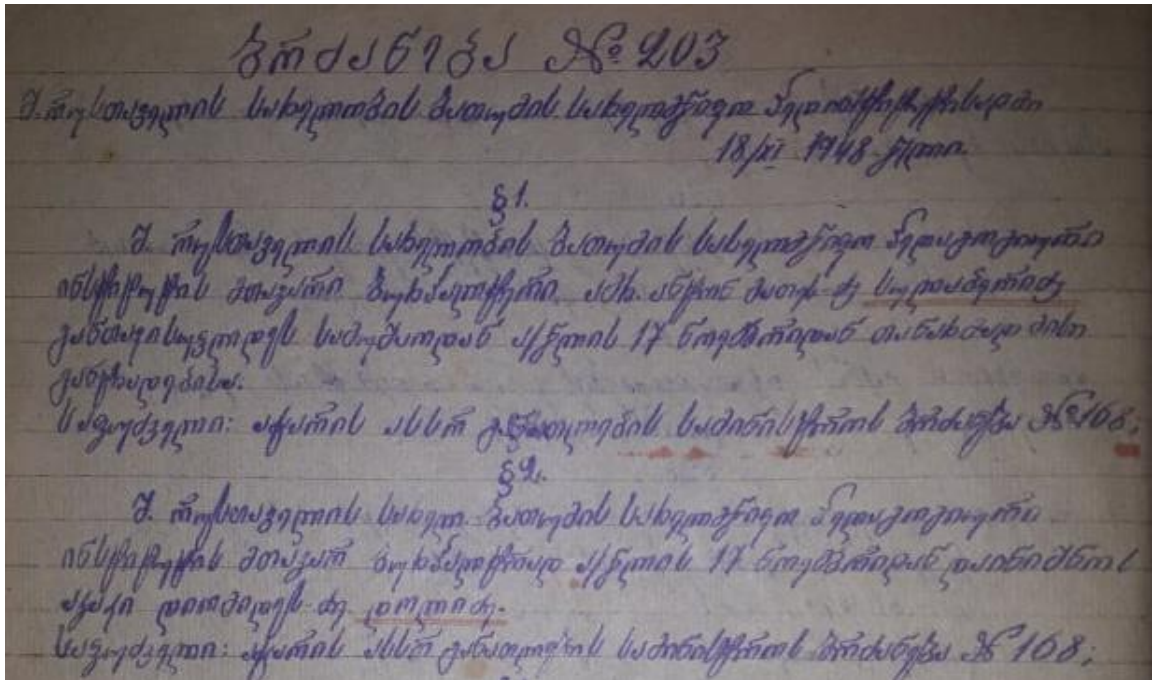 ბრძანება № 203
შ. რუსთაველის სახელობის ბათუმის სახელმწიფო პედინსტიტუტისადმი
18/XI 1948 წელი.
§1.
შ. რუსთაველის სახელობის ბათუმის სახელმწიფო პედაგოგიური
ინსტიტუტის მთავარი ბუხჰალტერი ამხ. ანტონ მათეს-ძე სულთანიძე
განთავისუფლდეს სამუშაოდან ა/წლის 17 ნოემბრიდან თანახმად მისი
განცხადებისა.
საფუძველი: აჭარის ასსრ განათლების სამინისტროს ბრძანება № 168;
§2.
შ. რუსთაველის სახელ. ბათუმის სახელმწიფო პედაგოგიური
ინსტიტუტის მთავარ ბუხჰალტრად ა/წლის 17 ნოემბრიდან დაინიშნოს
აკაკი დიომიდეს-ძე დოლიძე.
საფუძველი: აჭარის ასსრ განათლების სამინისტროს ბრძანება № 168;